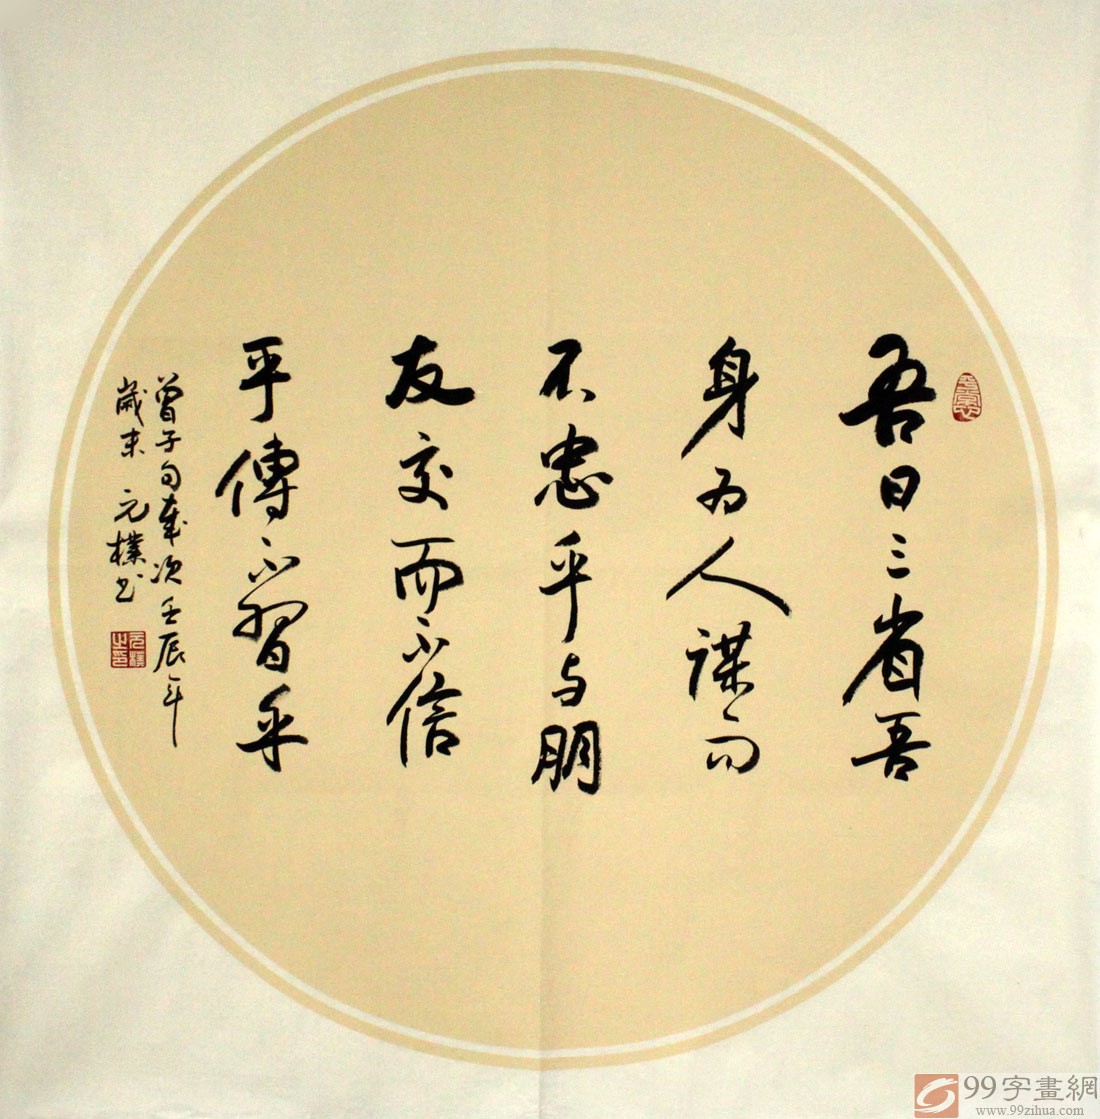 吾日三省吾
身为人謀而
不忠乎与朋
友交而不信
乎傳不習乎
曾子句歲次壬辰年
歲末 元樸书
99字畫網
www.99zihua.com